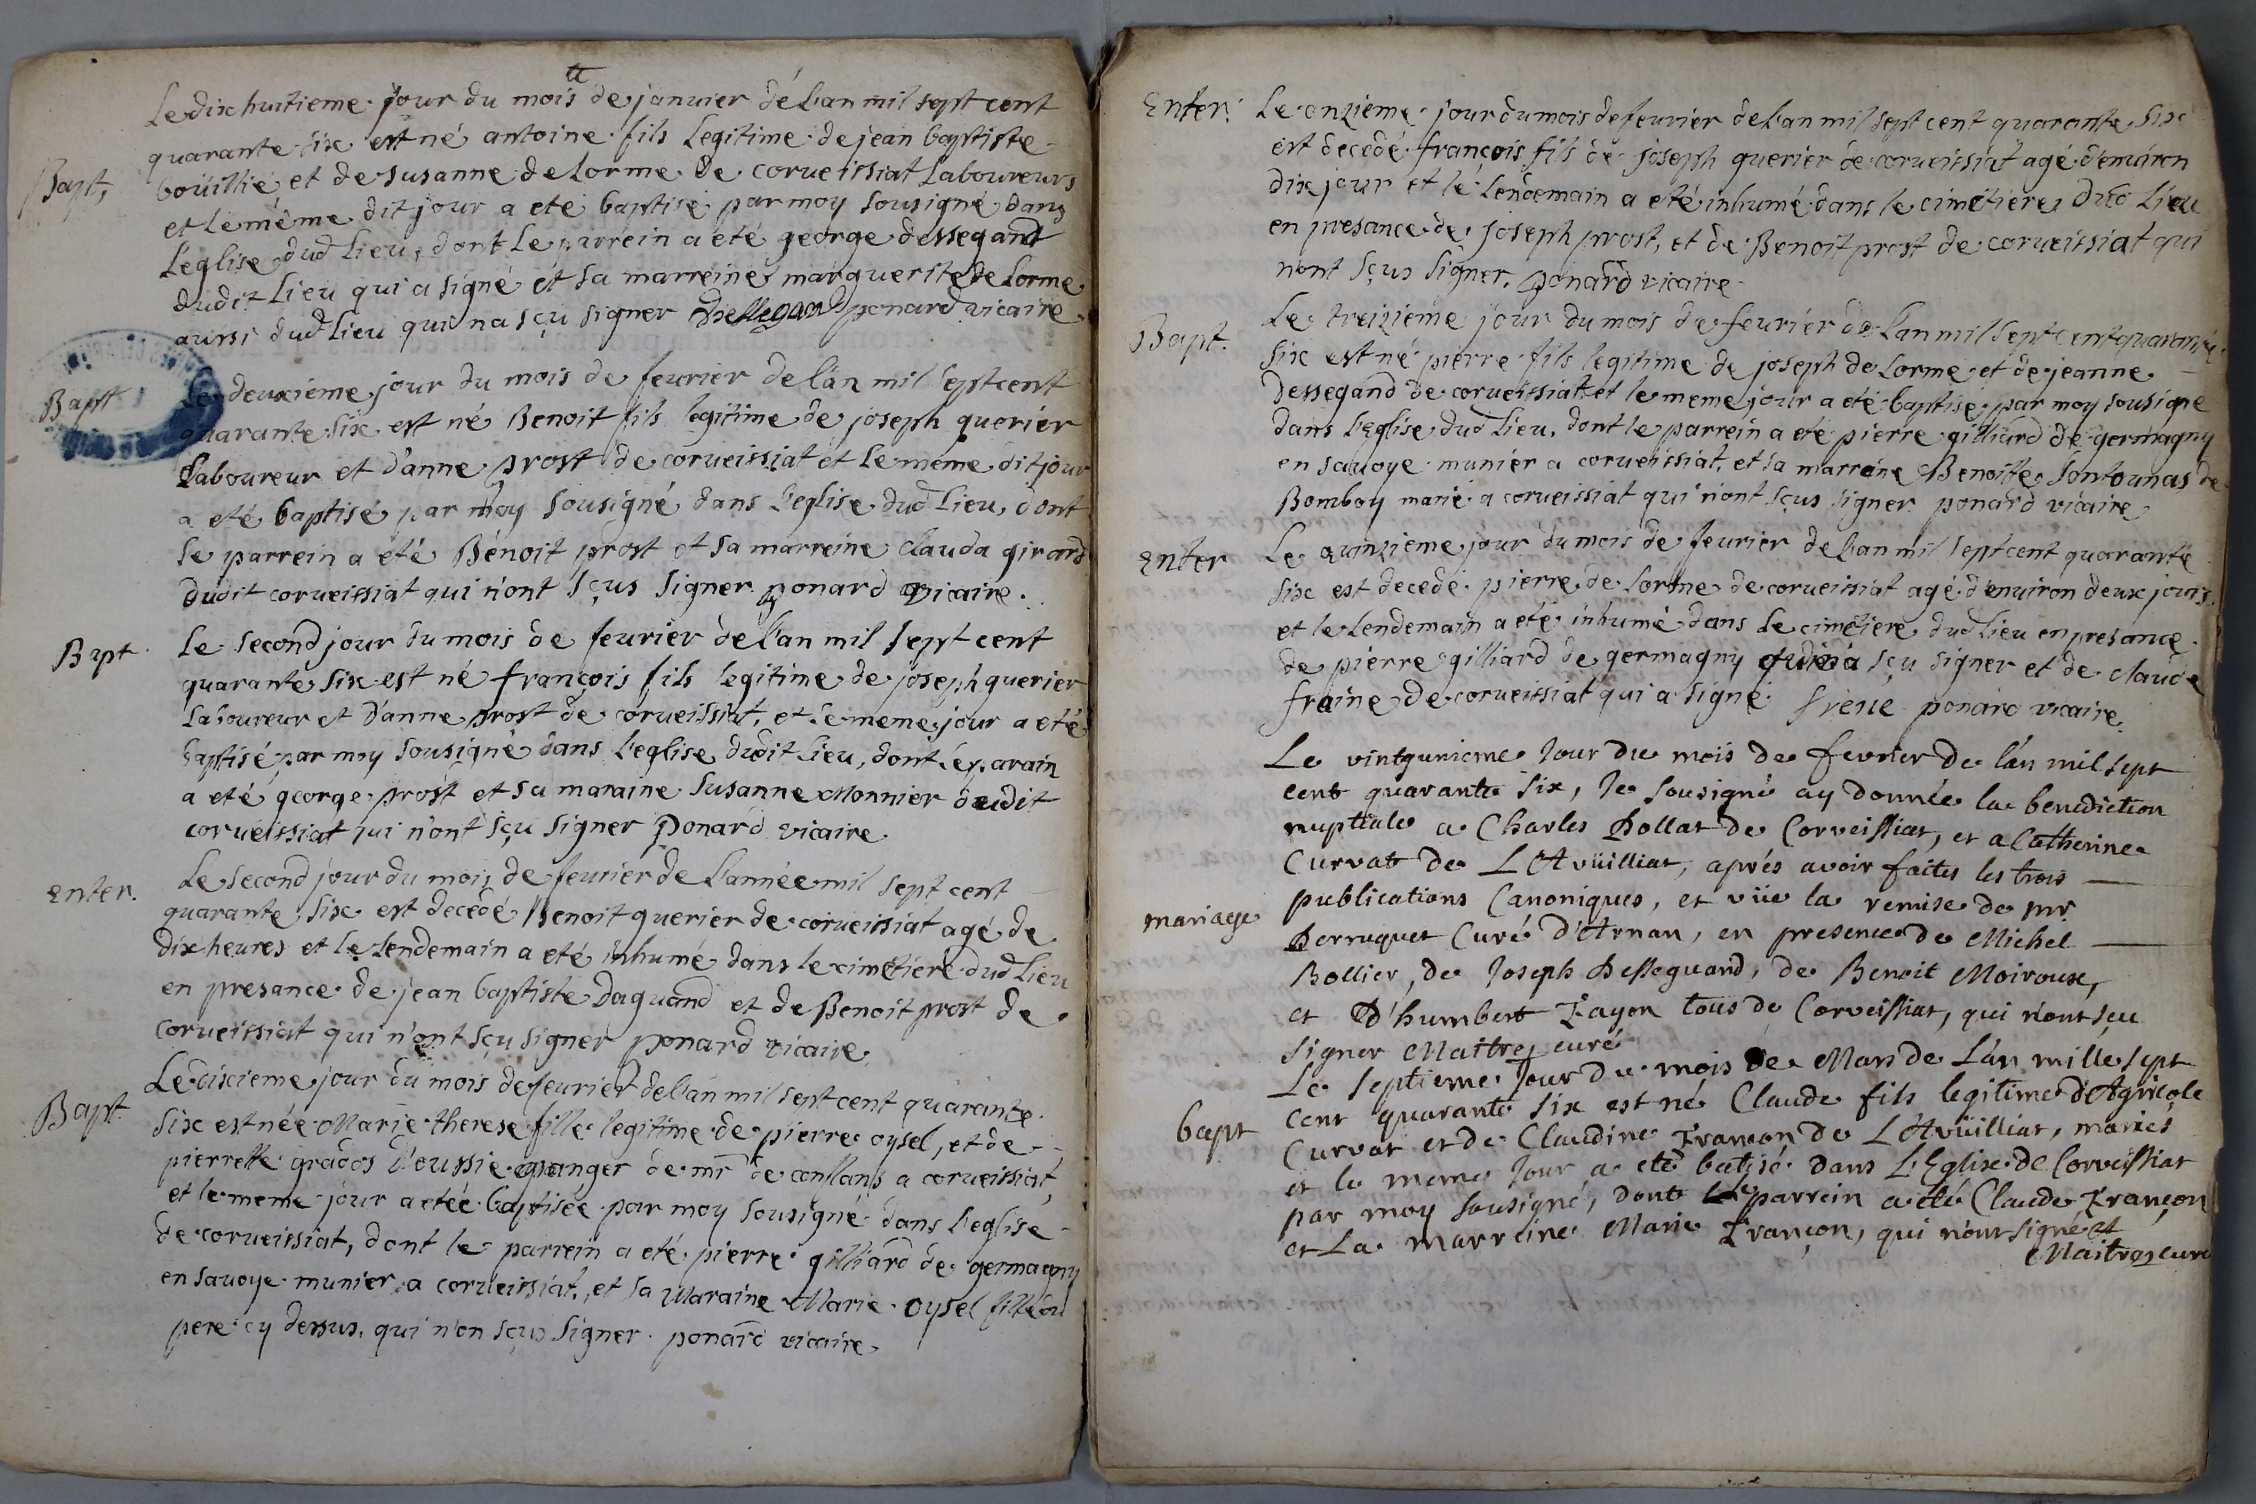 Bapt,
Le dix huitieme jour du mois de janvier de l'an mil sept cent
quarante six est né antoine fils Legitime de jean baptiste
boüillié et de susanne de Lorme de corveissiat Laboureurs
et le méme dit jour a eté baptisé par moy sousigné dans
L'eglise dud Lieu, dont le parrein a eté george dessegand
dudit Lieu qui a signé et sa marreine marguerite de Lorme
aussi dud Lieu qui na sçu signer Dessegand ponard vicaire
Bapt
Le deuxieme jour du mois de fevrier de l'an mil sept cent
quarante six est né Benoit fils legitime de joseph querier
Laboureur et d'anne prost de corveissiat et le méme dit jour
a eté baptisé par moy sousigné dans l'eglise dud Lieu, dont
le parrein a été Bénoit prost et sa marreine Clauda girard
dudit corveissiat qui n'ont sçus signer ponard vicaire.
Bapt
Le second jour du mois de fevrier de l'an mil sept cent
quarante six est né françois fils legitime de joseph querier
Laboureur et d'anne prost de corveissiat, et le meme jour a eté
baptisé par moy sousigné dans l'eglise dudit Lieu, dont le parain
a eté george prost et sa maraine susanne Monnier dudit
corveissiat qui n'ont sçu signer Ponard vicaire
Enter.
Le second jour du mois de fevrier de l'année mil sept cent
quarante six est decedé Benoit querier de corveissiat agé de
dix heures et le lendemain a eté inhumé dans le cimetiere dud Lieu
en presance de jean baptiste Daguand et de Benoit prost de
corveissiat qui n'ont sçu signer ponard vicaire
Bapt.
Le dixieme jour du mois de fevrier de l'an mil sept cent quarante
six est née Marie therese fille legitime de pierre oysel, et de
pierrette grados d'oussie granger de mr de conflans a corveissiat,
et le meme jour a etée baptisée par moy sousigné dans l'eglise
de corveissiat, dont le parrein a eté pierre gilliard de germagny
en savoye munier a corveissiat, et sa Maraine Marie oysel fille du
pere cy dessus, qui n'on sçus signer. ponard vicaire
Enter.
Le onzieme jour du mois de fevrier de l'an mil sept cent quarante six
est decedé françois fils de joseph querier de corveissiat agé d'environ
dix jour et le Lendemain a été inhumé dans le cimetiere dud Lieu
en presance de joseph prost, et de Benoit prost de corveissiat qui
nont sçus signer. ponard vicaire
Bapt.
Le treizieme jour du mois de fevrier de l'an mil sept cent quarante
six est né pierre fils legitime de joseph de Lorme et de jeanne
Dessegand de corveissiat et le meme jour a eté baptisé par moy sousigné
dans l'eglise dud Lieu, dont le parrein a eté pierre gilliard de germagny
en savoye munier a corveissiat, et sa marreine Benoite Sontounas de
Bomboy marié a corveissiat qui n'ont sçus signer ponard vicaire
Enter
Le quinzieme jour du mois de fevrier de l'an mil sept cent quarante
six est decedé pierre de Lorme de corveissiat agé d'environ deux jours
et le lendemain a eté inhumé dans le cimetiere dud Lieu en presance
de pierre gilliard de germagny qui n'a sçu signer et de claude
fraine de corveissiat qui a signé. frene ponard vicaire
mariage
Le vintgunieme Jour du mois de fevrier de l'an mil sept
cent quarante six, Je sousigné ay donnée la benediction
nuptiale a Charles Pollat de Corveissiat, et a Catherine
Curvat de L'Avüilliat, aprés avoir faites les trois
publications Canoniques, et vüe la remise de mr
Perruquet Curé D'Arnan, en presence de Michel
Bollier, de Joseph Desseguand, de Benoit Moiroux,
et D'humbert Rayon tous de Corveissiat, qui n'ont sçu
signer Maitre curé
bapt
Le septieme Jour du mois de Mars de L'an mille sept
cent quarante six est né Claude fils legitime d'Agricole
Curvat et de Claudine Françon de L'Avüilliat, mariés
et le meme Jour a eté batisé dans L'Eglise de Corveissiat
par moy sousigné, dont le parrein a eté Claude Françon
et La marreine Marie Françon, qui n'ont signé et
Maitre curé